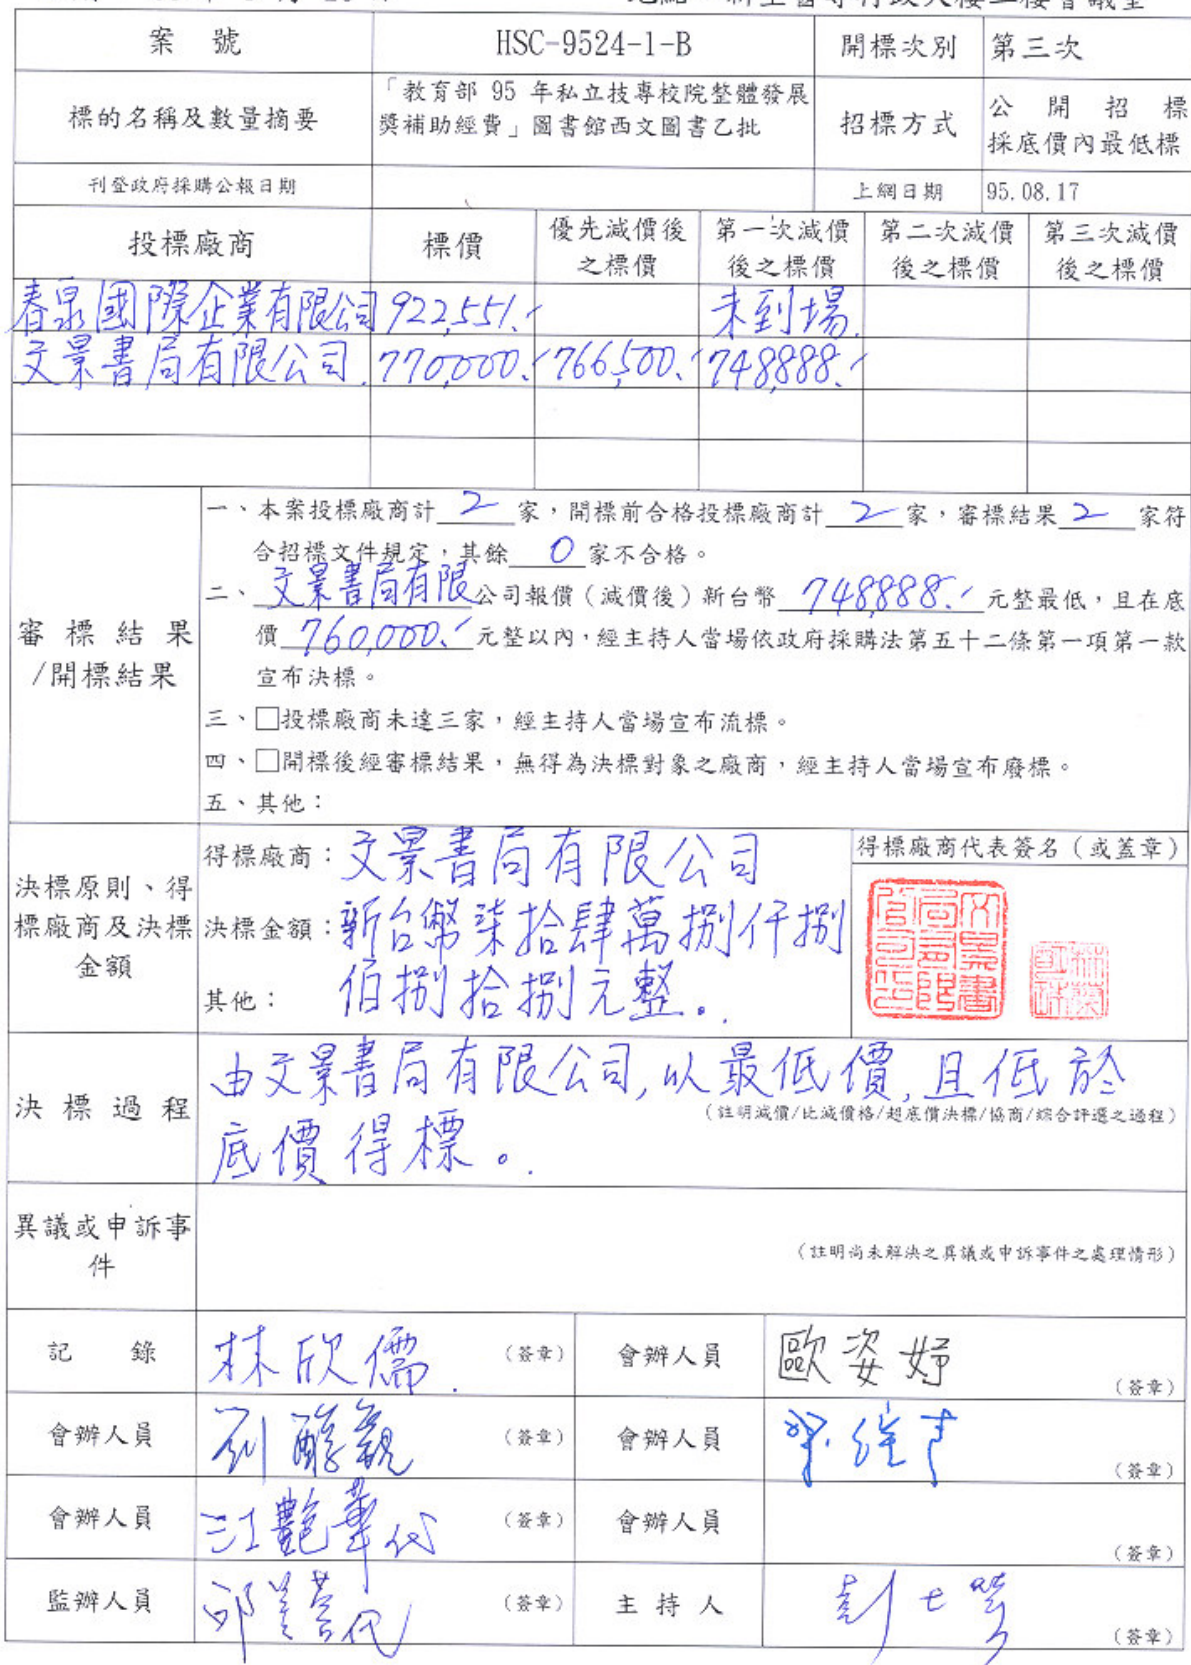 案 號 HSC-9524-1-B 開標次別 第三次
標的名稱及數量摘要 「教育部 95 年私立技專校院整體發展
獎補助經費」圖書館西文圖書乙批 招標方式 公開招標
採底價內最低標
刊登政府採購公報日期 上網日期 95.08.17
投標廠商 標價 優先減價後
之標價 第一次減價
後之標價 第二次減價
後之標價 第三次減價
後之標價
春泉國際企業有限公司 922,551.- 未到場.
文景書局有限公司. 770,000.- 766,500.- 748,888.-
審標結果
/開標結果
一、本案投標廠商計 2 家，開標前合格投標廠商計 2 家，審標結果 2 家符
合招標文件規定，其餘 0 家不合格。
二、文景書局有限公司報價（減價後）新台幣 748,888.- 元整最低，且在底
價 760,000.- 元整以內，經主持人當場依政府採購法第五十二條第一項第一款
宣布決標。
三、□投標廠商未達三家，經主持人當場宣布流標。
四、□開標後經審標結果，無得為決標對象之廠商，經主持人當場宣布廢標。
五、其他：
決標原則、得
標廠商及決標
金額
得標廠商：文景書局有限公司
決標金額：新台幣柒拾肆萬捌仟捌
其他： 佰捌拾捌元整。
得標廠商代表簽名（或蓋章）
決標過程
由文景書局有限公司,以最低價,且低於
（註明減價/比減價格/超底價決標/協商/綜合評選之過程）
底價得標。
異議或申訴事
件
（註明尚未解決之異議或申訴事件之處理情形）
記 錄 林欣儒 （簽章） 會辦人員 歐姿妤 （簽章）
會辦人員 劉醇 （簽章） 會辦人員 （簽章）
會辦人員 江艷華代 （簽章） 會辦人員 （簽章）
監辦人員 （簽章） 主持人 （簽章）